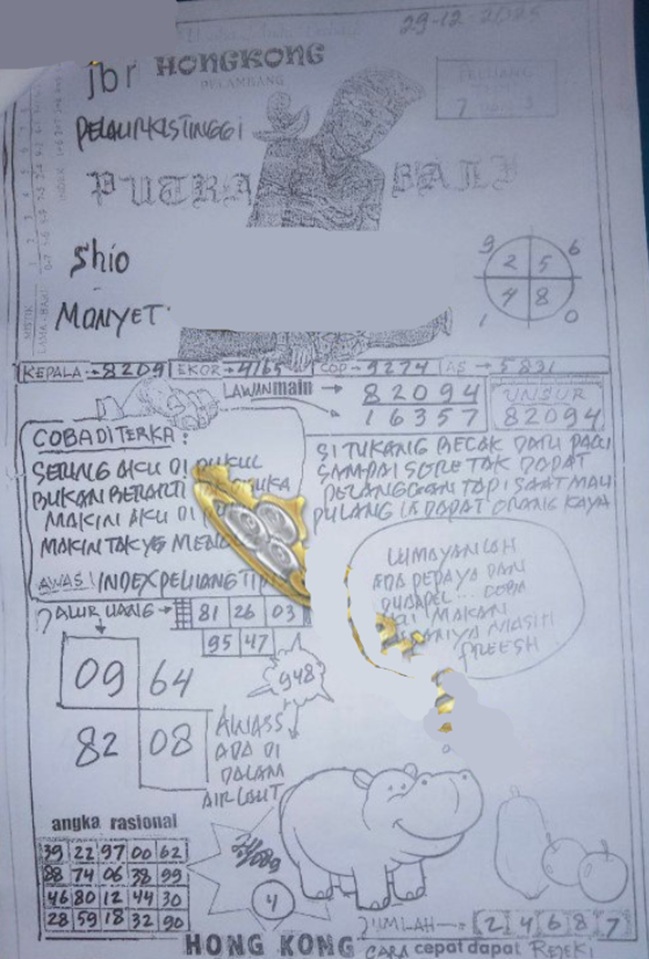 29-12-2025
jbr HONGKONG
PELAURKISTINGGI
PUTRA BALI
Shio
MONYET
9 6
2 5
4 8
1 0
KEPALA 8209 EKOR 4165 COP 9274 AS 5831
LAWAN main 82094
16357
UNSUR
82094
COBA DITERKA:
SERING AKU DI PUKUL
BUKAN BERARTI
MAKIN AKU DI
MAKIN TAK
AWAS! INDEX PELUANG
SI TUKANG BECAK DARI PAGI
SAMPAI SORE TAK DAPAT
PELANGGAN TAPI SAAT MAU
PULANG IA DAPAT ORANG KAYA
LUMAYANLAH
ADA PEPAYA DAN
MAKAN
MASIH
FREESH
JALUR UANG 81 26 03
95 47
09 64
82 08
948
AWASS
ADA DI
DALAM
AIR LAUT
angka rasional
39 22 97 00 62
88 74 06 38 99
46 80 12 44 30
28 59 18 32 90
4
JUMLAH 2 4 6 8 7
HONG KONG CARA cepat dapat REJEKI